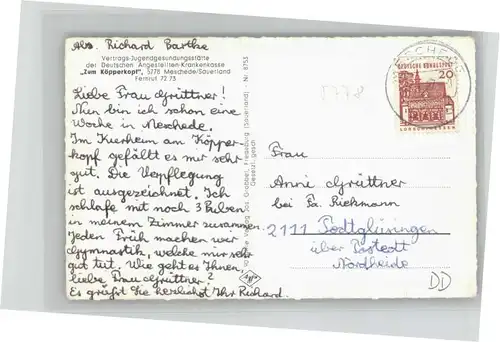 Abs. Richard Bartke
Vertrags-Jugendgesundungsstätte
der Deutschen Angestellten-Krankenkasse
„Zum Köpperkopf", 5778 Meschede/Sauerland
Fernruf 72 73
Liebe Frau Grüttner!
Nun bin ich schon eine
Woche in Meschede.
Im Kurheim am Köpper-
kopf gefällt es mir sehr
gut. Die Verpflegung
ist ausgezeichnet. Ich
schlafe mit noch 3 Buben
in meinem Zimmer zusammen.
Jeden Früh machen wir
Gymnastik, welche mir sehr
gut tut. Wie geht es Ihnen
liebe Frau Grüttner?
Es grüßt Sie herzlichst Ihr Richard.
Nr. 8755
Gesetzl. gesch.
5778
DEUTSCHE BUNDESPOST
20
LORSCH/HESSEN
Frau
Anni Grüttner
bei Fa. Riekmann
2111 Todtglüsingen
über Tostedt
Nordheide